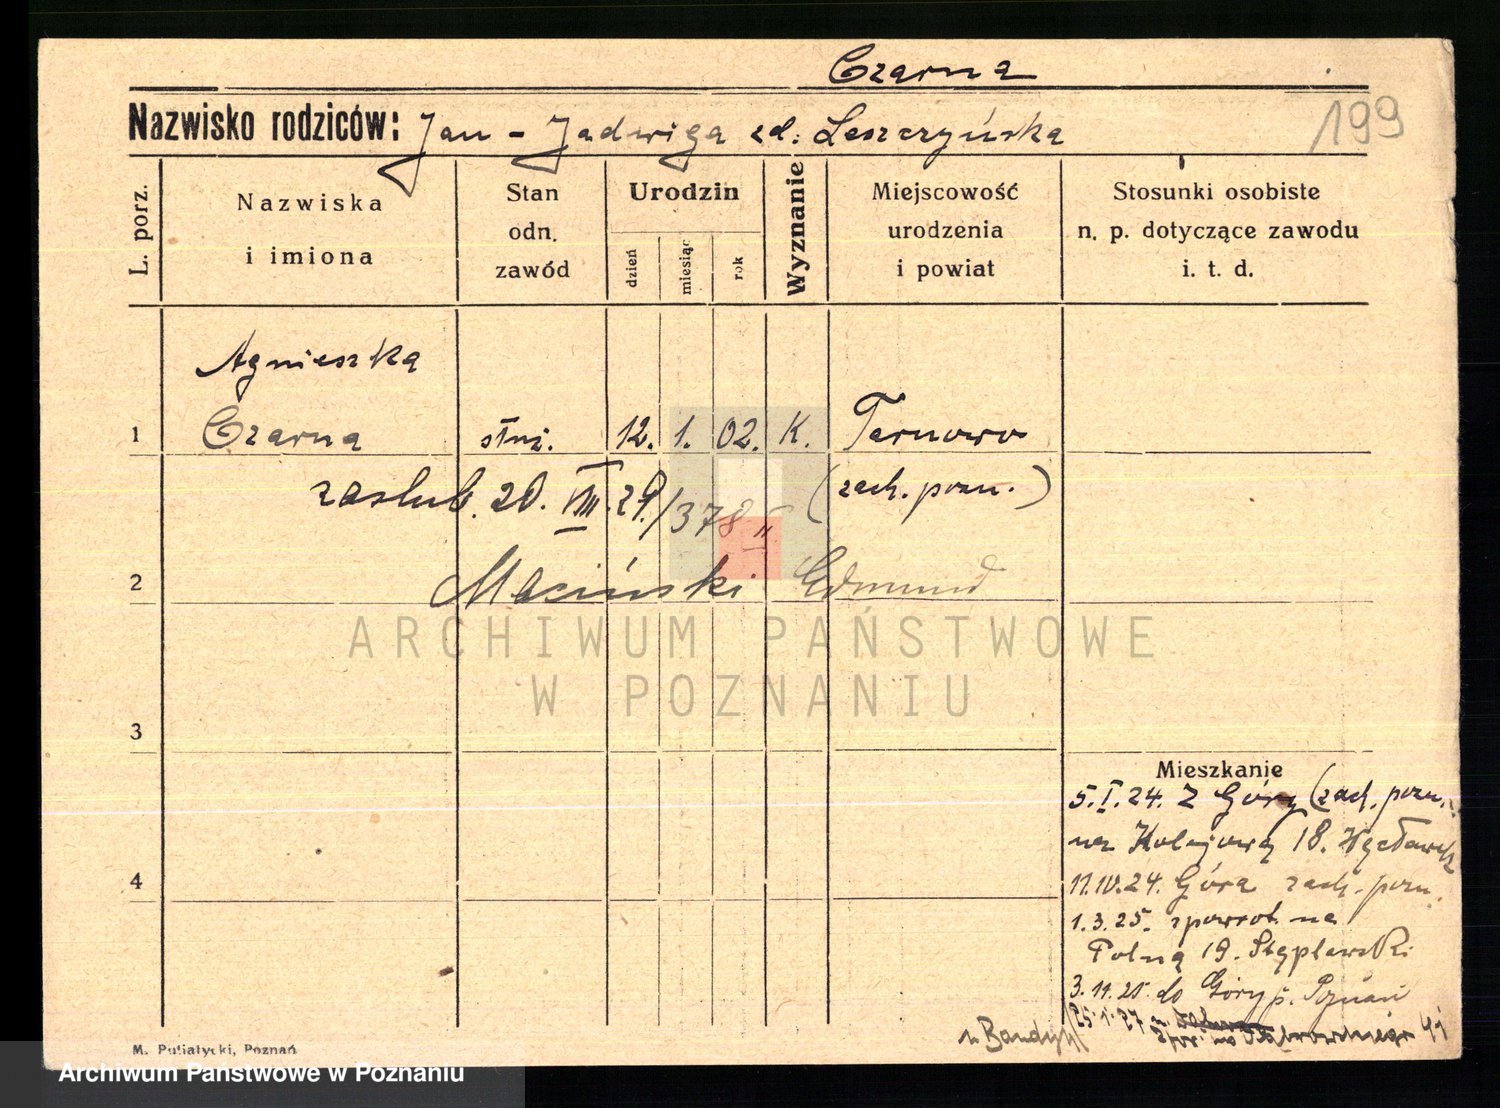 Czarna
Nazwisko rodziców: Jan - Jadwiga zd. Leszczyńska
199
L. porz.
Nazwiska
i imiona
Stan
odn.
zawód
Urodzin
dzień
miesiąc
rok
Wyznanie
Miejscowość
urodzenia
i powiat
Stosunki osobiste
n. p. dotyczące zawodu
i. t. d.
Agnieszka
1 Czarna służ. 12. 1. 02. K. Tarnowo
zaslub. 20. VIII. 29./378 II (zach. pozn.)
2 Maciński Edmund
ARCHIWUM PAŃSTWOWE
W POZNANIU
3
Mieszkanie
5.I.24. z Góry (zach. pozn.
na Kolejową 18.
4
11.IV.24. Góra zach. pozn.
1.3.25. zpowrot na
Polną 19.
3.11.25 do Góry p. Poznań
25.1.27
na Dąbrowskiego 41
M. Putiatycki, Poznań
Archiwum Państwowe w Poznaniu